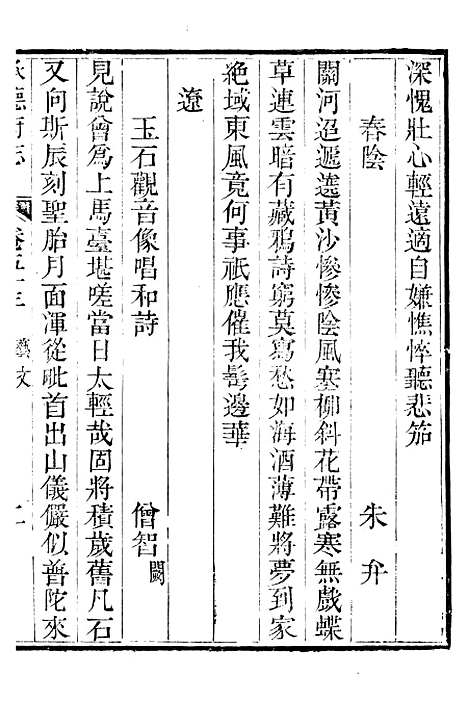 深愧壯心輕遠適自嫌憔悴聽悲笳
春陰　朱弁
關河迢遞遶黃沙慘慘陰風塞柳斜花帶露寒無戲蝶
草連雲暗有藏鴉詩窮莫寫愁如海酒薄難將夢到家
絶域東風竟何事祇應催我鬂邊華
遼
玉石觀音像唱和詩　僧智闕
見說曾爲上馬臺堪嗟當日太輕哉固將積歲舊凡石
又向斯辰刻聖胎月面渾從毗首出山儀儼似普陀來
承德府志　卷五十三　藝文　二